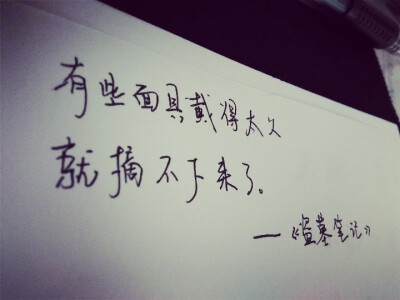 有些面具戴得太久
就摘不下来了。
—《盗墓笔记》